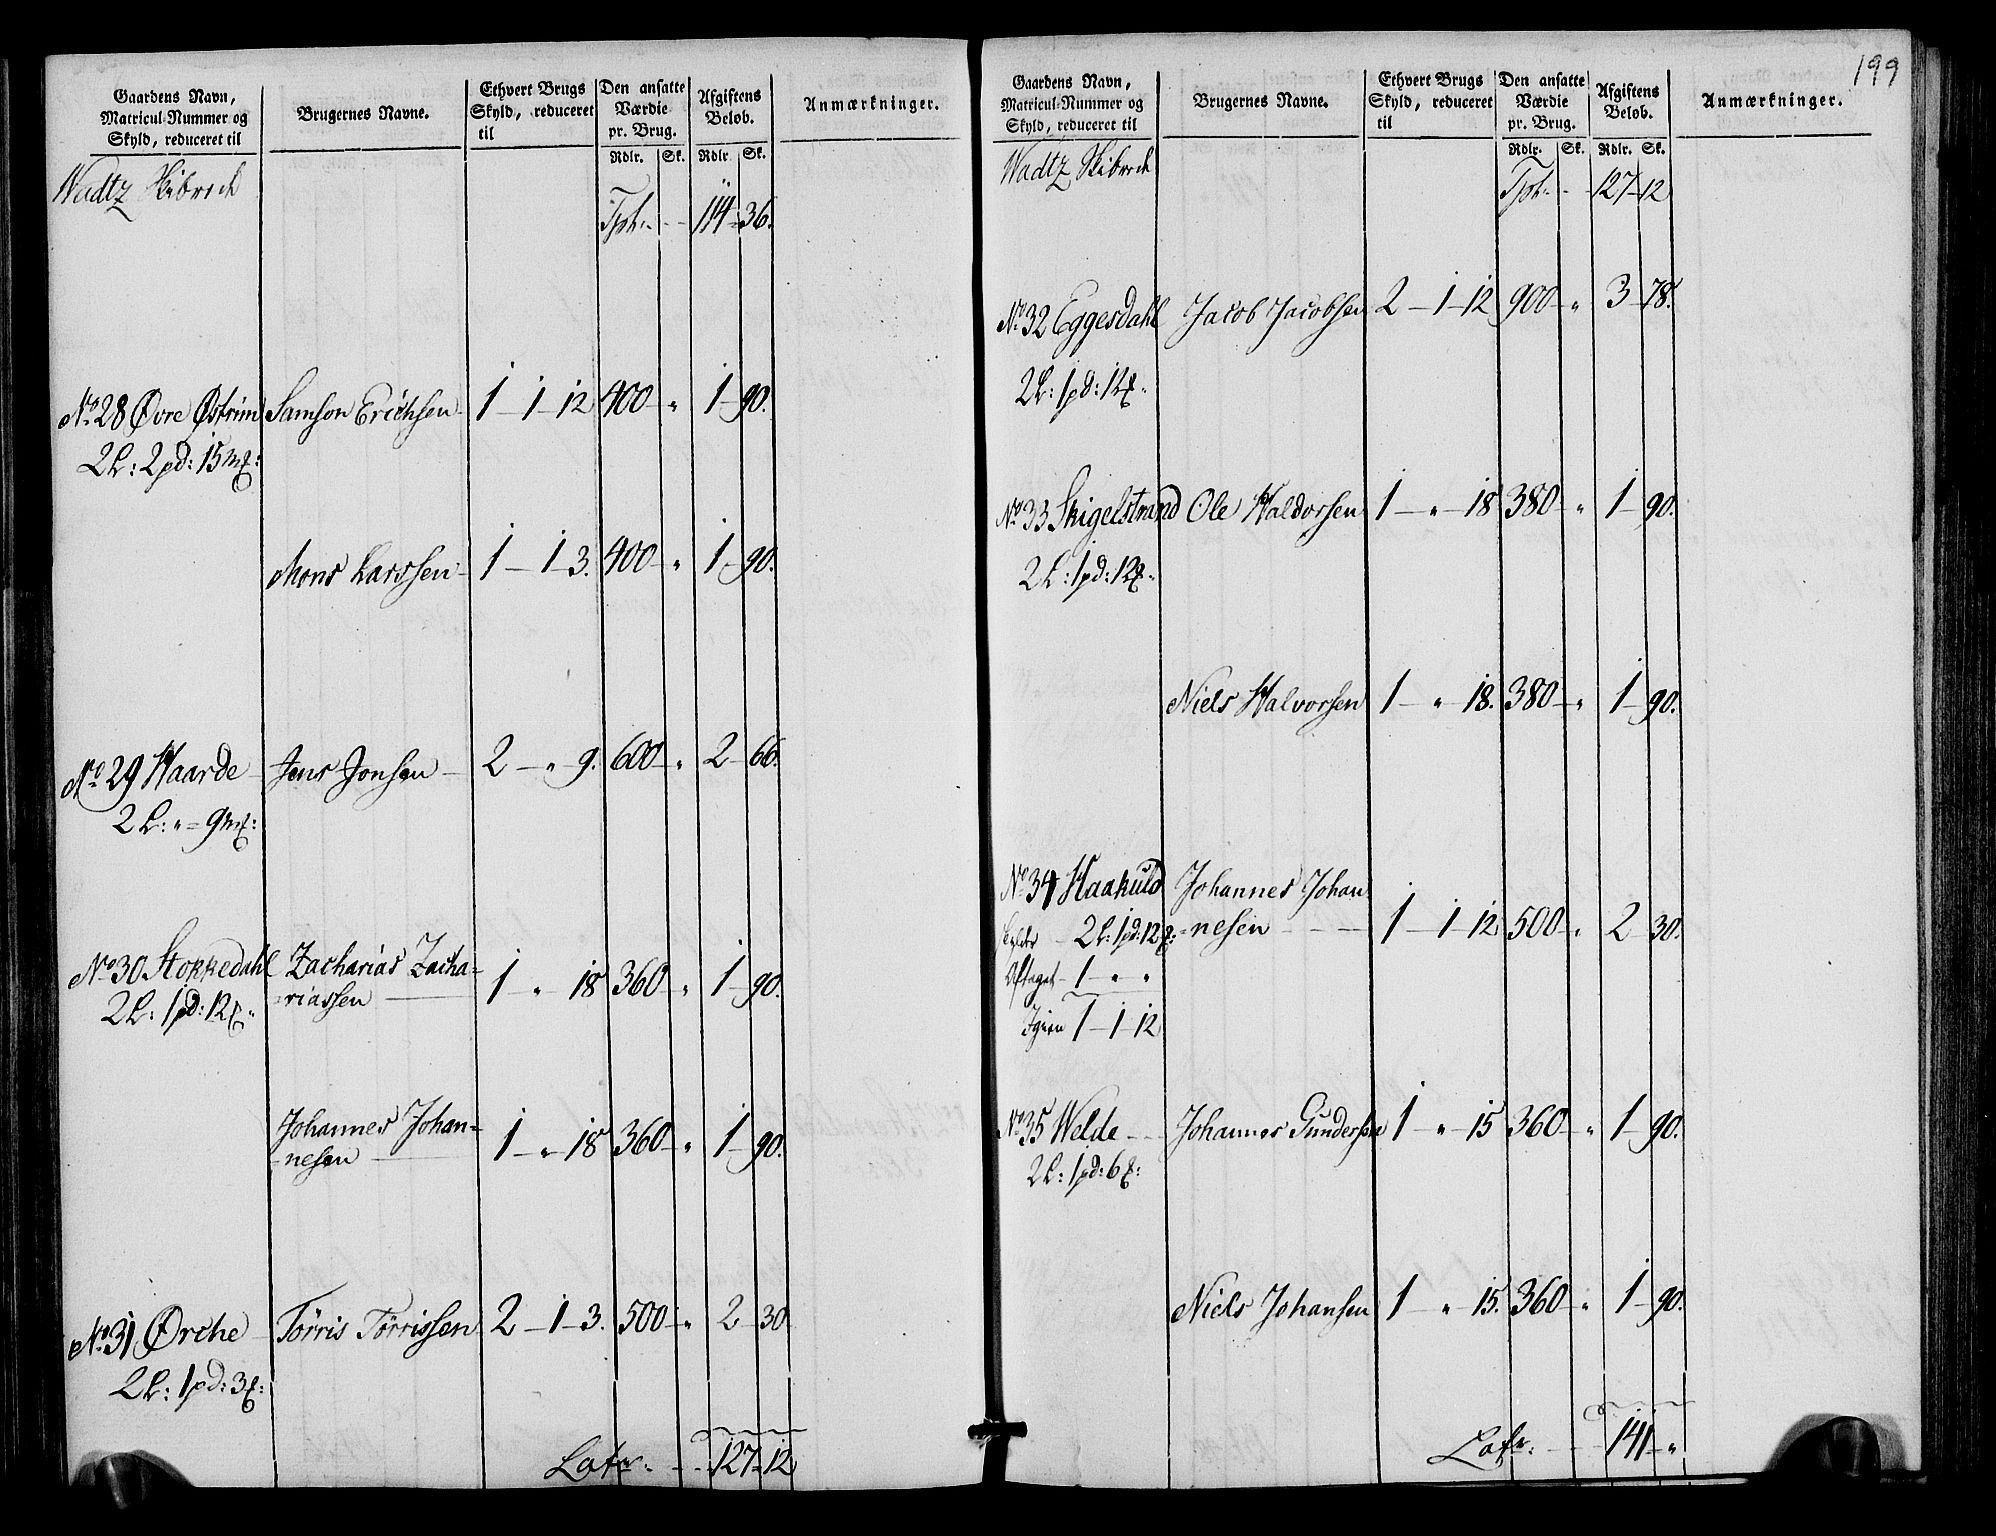 Gaardens Navn,
Matricul-Nummer og
Skyld, reduceret til
Brugernes Navne.
Ethvert Brugs
Skyld, reduceret
til
Den ansatte
Værdie
pr. Brug.
Rdlr. Sk.
Afgiftens
Beløb.
Rdlr. Sk.
Anmærkninger.
Wadtz Skibrede
Tpt. 114 = 36.
No. 28 Øvre Østrim Samson Erichsen 1 - 1 - 12 400 - " 1 - 90.
2 L: 2 pd: 15 mk:
Mons Larssen 1 - 1 - 3. 400 - " 1 - 90.
No. 29 Haarde Jens Jonsen 2 - " 9. 600 - " 2 - 66.
2 L: " = 9 mk:
No. 30 Stokkedahl Zacharias Zacha=
=riassen 1 " 18 360 - " 1 - 90.
2 L: 1 pd: 12 k.
Johannes Johan=
=nesen 1 - " - 18 360 - " 1 - 90.
No. 31 Ørche Törris Törrissen 2 - 1 - 3. 500 - " 2 - 30.
2 L: 1 pd: 3 k:
Latr. 127 = 12
199
Gaardens Navn,
Matricul-Nummer og
Skyld, reduceret til
Brugernes Navne.
Ethvert Brugs
Skyld, reduceret
til
Den ansatte
Værdie
pr. Brug.
Rdlr. Sk.
Afgiftens
Beløb.
Rdlr. Sk.
Anmærkninger.
Wadtz Skibrede
Tpt. 127 - 12
No. 32 Eggesdahl Jacob Jacobsen 2 - 1 - 12 900 - " 3 - 78.
2 L: 1 pd: 12 k.
No. 33 Skigelstrand Ole Haldorsen 1 - " - 18 380 - " 1 - 90.
2 L: 1 pd: 12 k.
Niels Halvorsen 1 - " 18. 380 - " 1 - 90.
No. 34 Haakuld Johannes Johan
=nesen 1 - 1 - 12. 500 - " 2 - 30.
Skylder 2 L: 1 pd: 12 k:
Aftaget - 1 - " "
Igien 1 - 1 - 12
No. 35 Welde Johannes Gundersen 1 - " - 15 360 - " 1 - 90.
2 L: 1 pd: 6 k:
Niels Johansen 1 " 15. 360 - " 1 - 90.
Latr. 141 - "